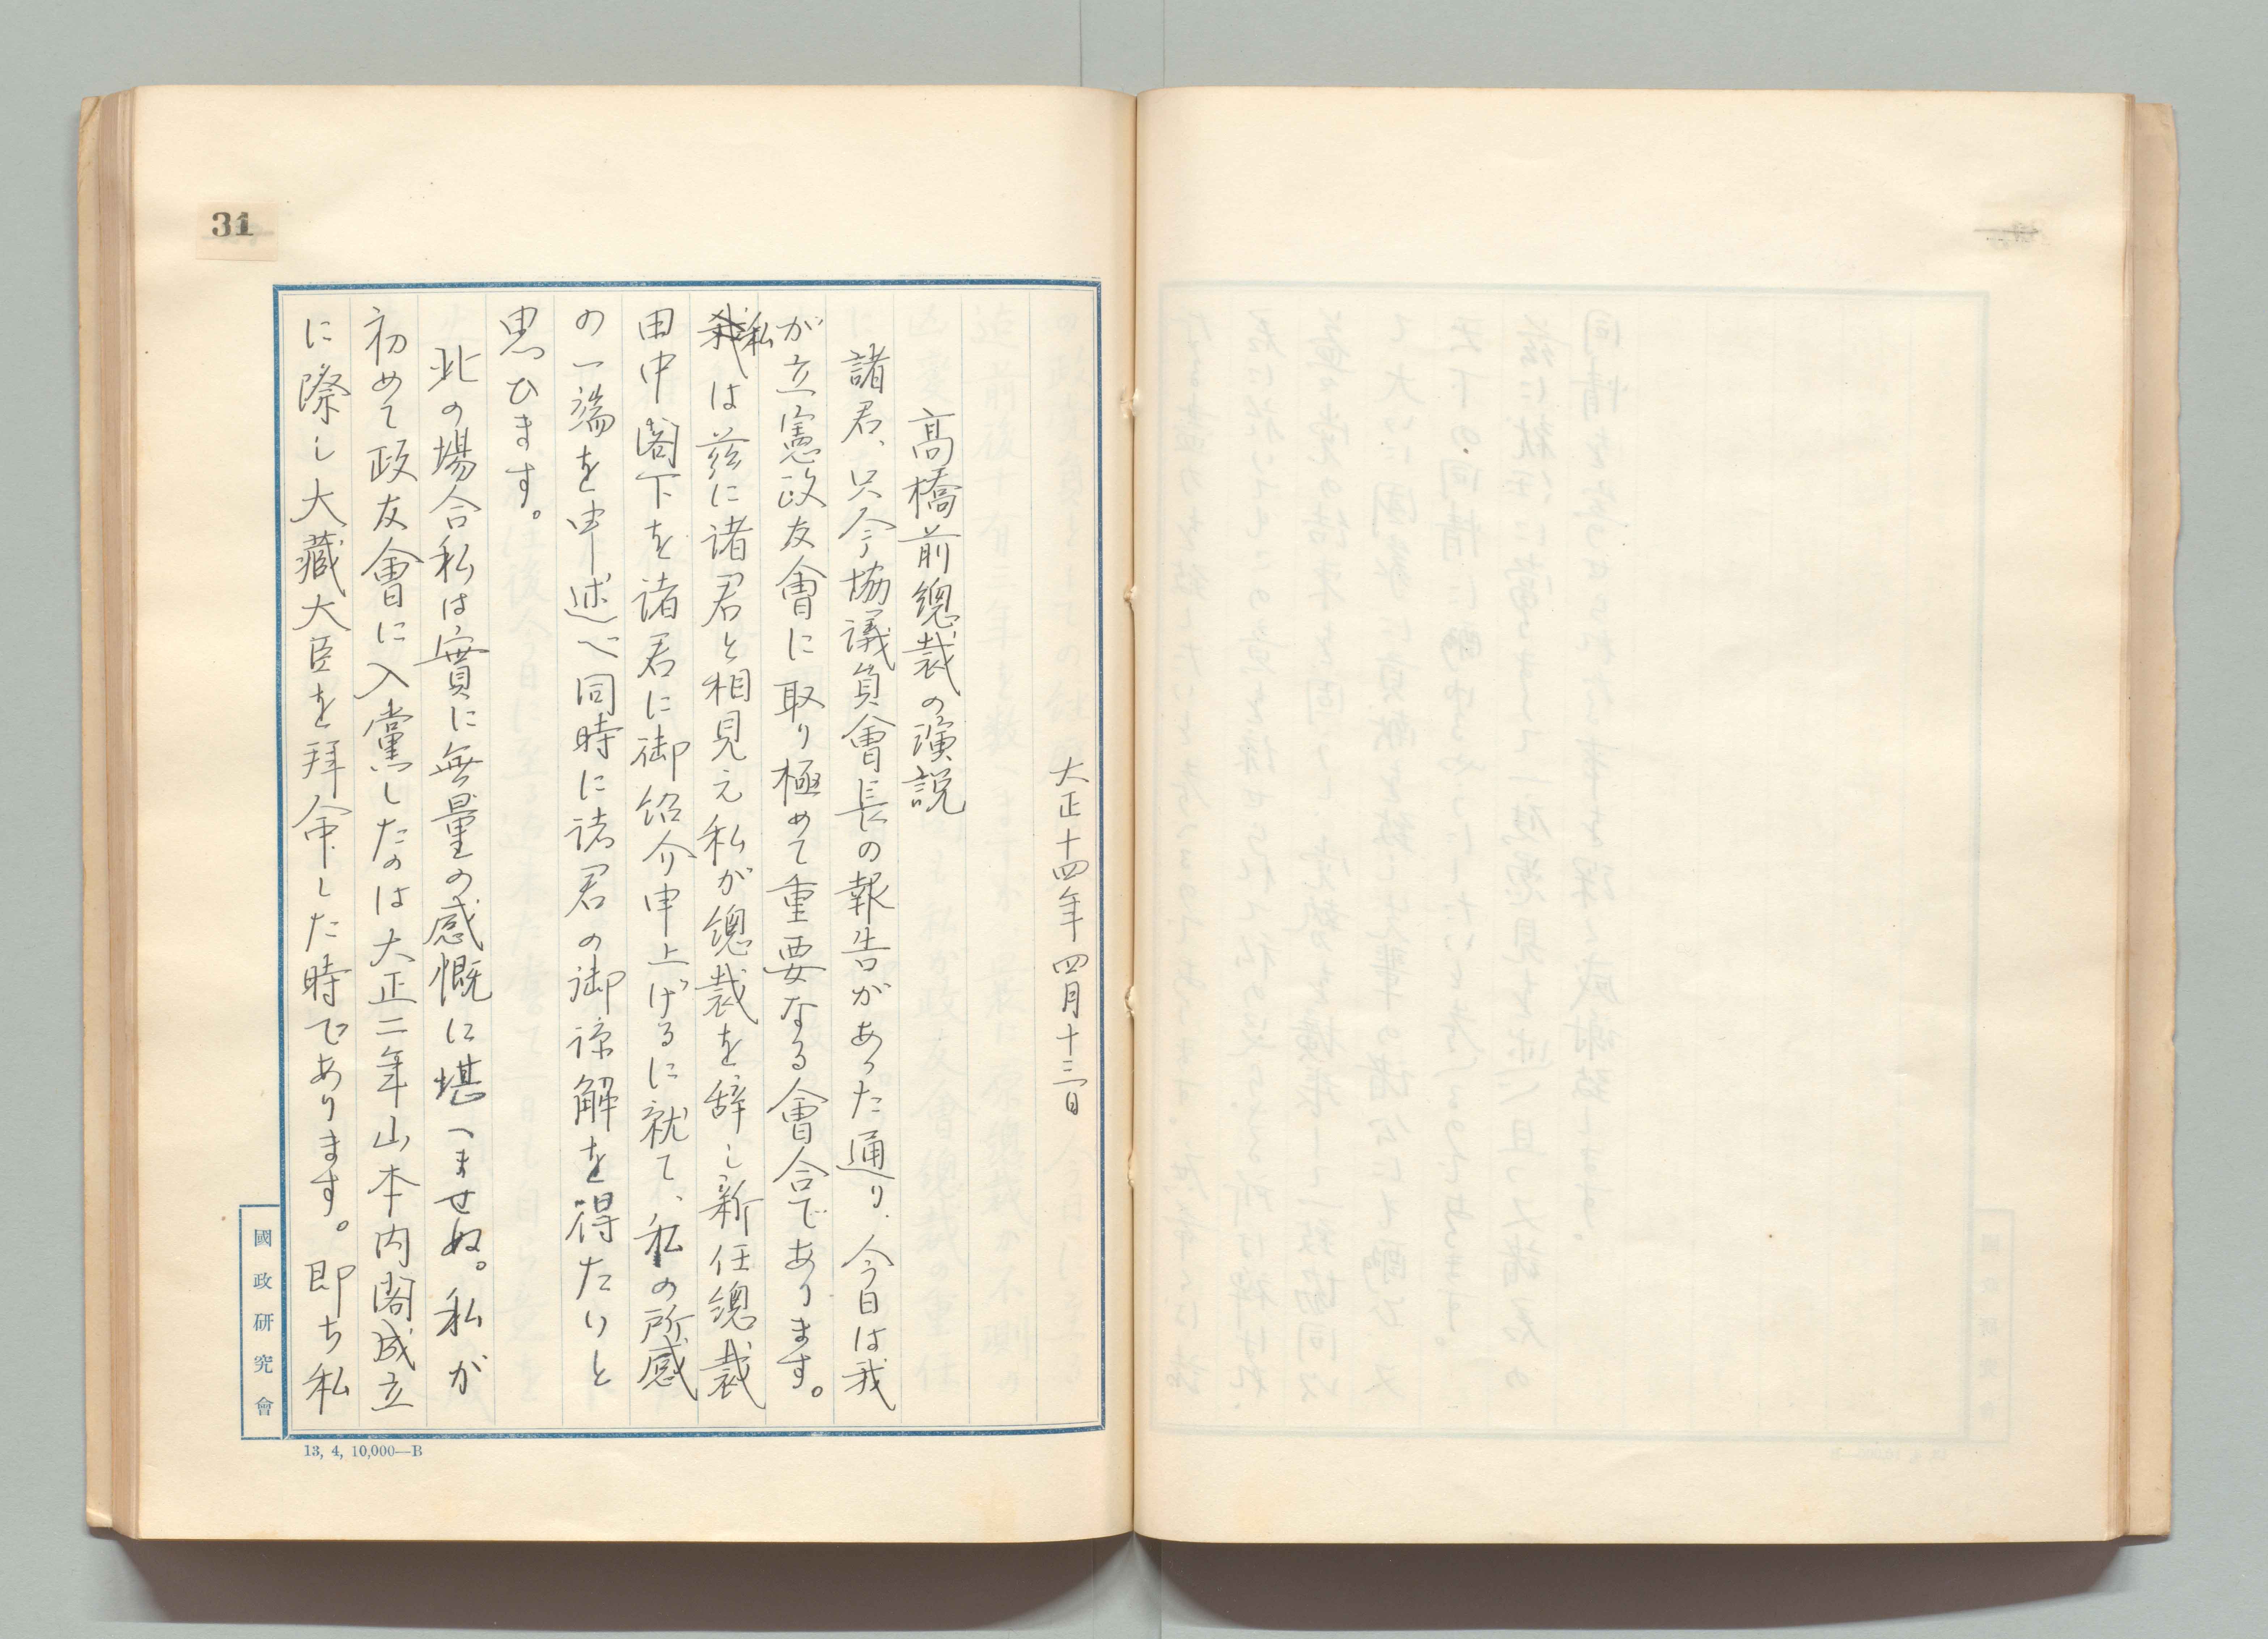 31
大正十四年四月十三日
高橋前總裁の演説
諸君、只今協議員會長の報告があった通り、今日は我
が立憲政友會に取り極めて重要なる會合であります。
私は茲に諸君と相見え私が總裁を辞し新任總裁
田中閣下を諸君に御紹介申上げるに就て、私の所感
の一端を申述べ同時に諸君の御諒解を得たいと
思ひます。
此の場合私は實に無量の感慨に堪へませぬ。私が
初めて政友會に入黨したのは大正二年山本内閣成立
に際し大藏大臣を拜命した時であります。即ち私
國政研究會
13, 4, 10,000—B